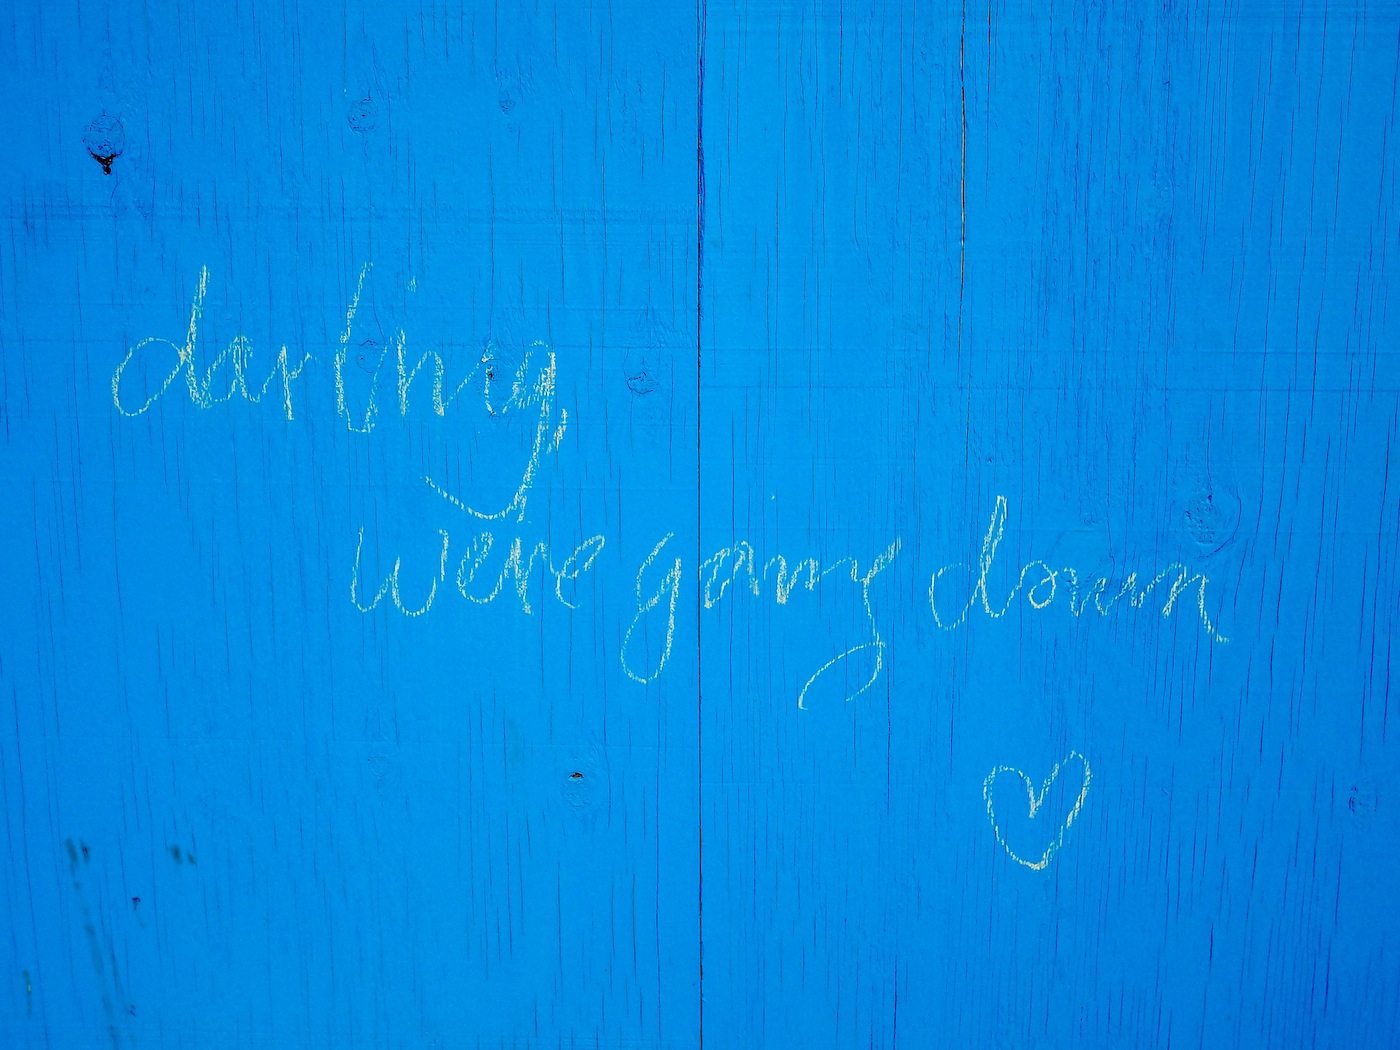 darling,
we're going down